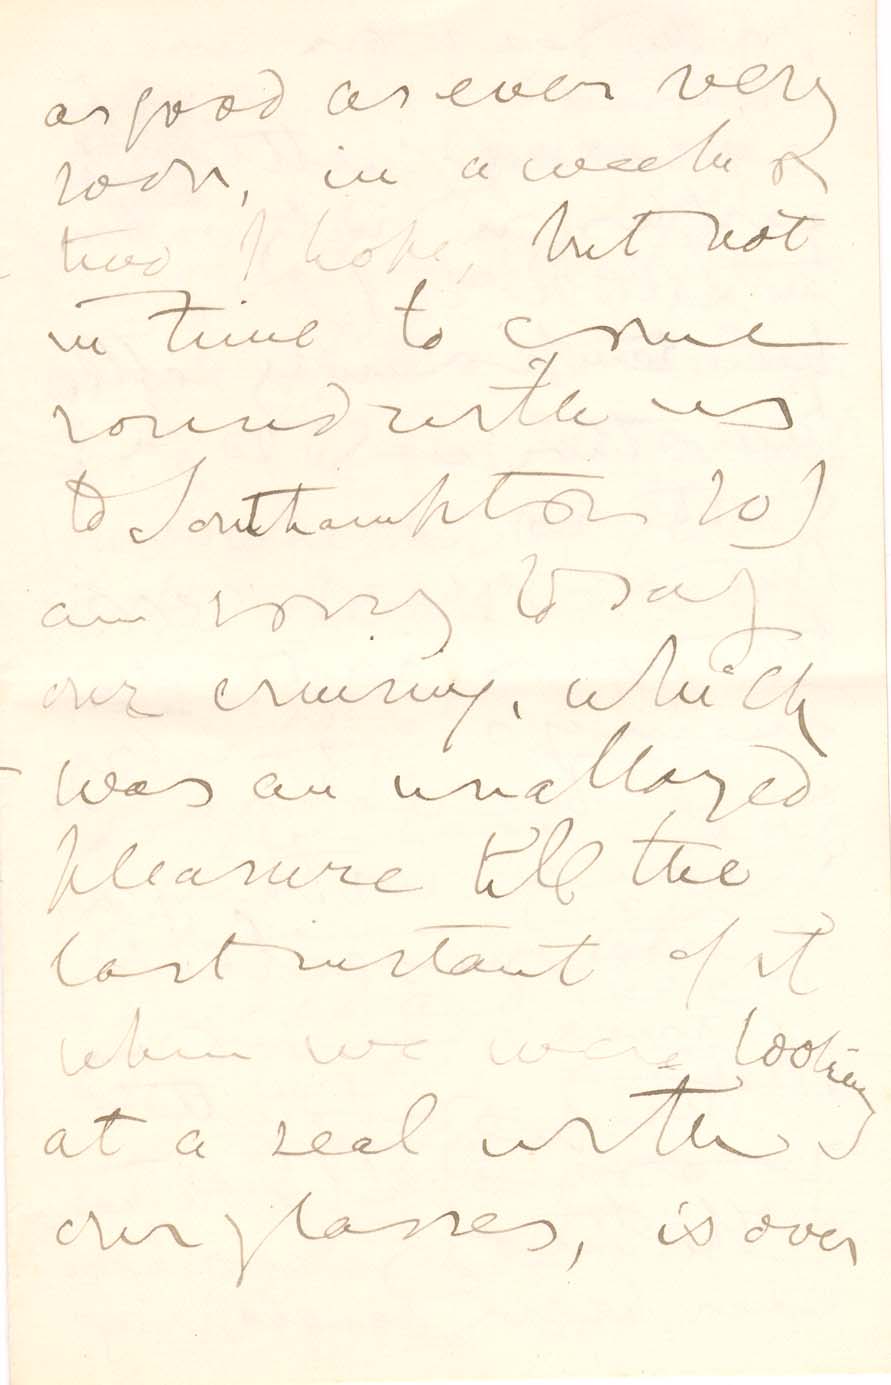 as good as ever very
soon, in a week or
two I hope, but not
in time to come
round with us
to Southampton so I
am sorry to say
our cruising, which
was an unalloyed
pleasure till the
last instant of it
when we were looking
at a seal with
our glasses, is over